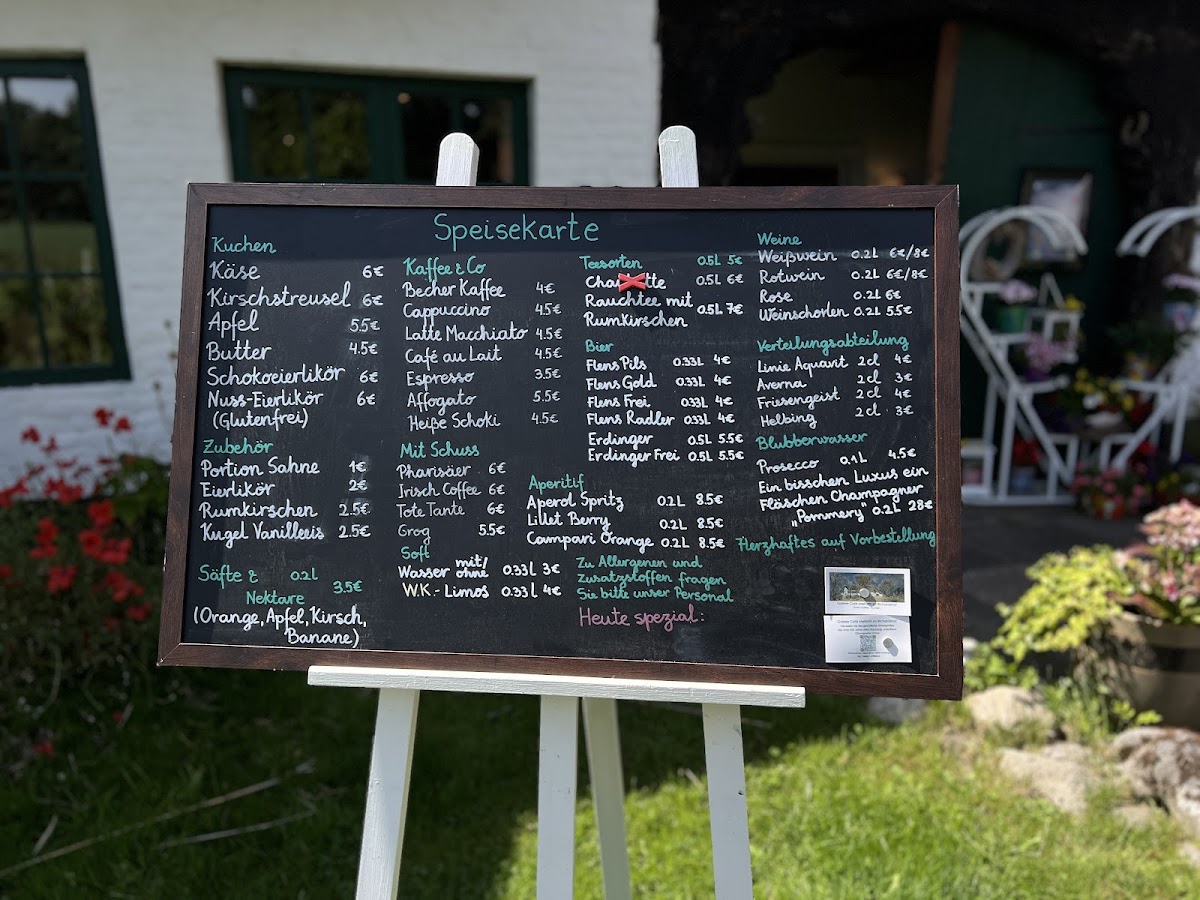 Speisekarte
Kuchen
Käse 6€
Kirschstreusel 6€
Apfel 5.5€
Butter 4.5€
Schokoeierlikör 6€
Nuss-Eierlikör 6€
(Glutenfrei)
Zubehör
Portion Sahne 1€
Eierlikör 2€
Rumkirschen 2.5€
Kugel Vanilleeis 2.5€
Säfte & 0.2l
Nektare 3.5€
(Orange, Apfel, Kirsch,
Banane)
Kaffee & Co
Becher Kaffee 4€
Cappuccino 4.5€
Latte Macchiato 4.5€
Café au Lait 4.5€
Espresso 3.5€
Affogato 5.5€
Heiße Schoki 4.5€
Mit Schuss
Pharisäer 6€
Irisch Coffee 6€
Tote Tante 6€
Grog 5.5€
Soft
Wasser mit/ohne 0.33l 3€
W.K.-Limos 0.33l 4€
Teesorten 0.5l 5€
0.5l 6€
Rauchtee mit
Rumkirschen 0.5l 7€
Bier
Flens Pils 0.33l 4€
Flens Gold 0.33l 4€
Flens Frei 0.33l 4€
Flens Radler 0.33l 4€
Erdinger 0.5l 5.5€
Erdinger Frei 0.5l 5.5€
Aperitif
Aperol Spritz 0.2l 8.5€
Lillet Berry 0.2l 8.5€
Campari Orange 0.2l 8.5€
Zu Allergenen und
Zusatzstoffen fragen
Sie bitte unser Personal
Heute spezial:
Weine
Weißwein 0.2l 6€/8€
Rotwein 0.2l 6€/8€
Rose 0.2l 6€
Weinschorlen 0.2l 5.5€
Verteilungsabteilung
Linie Aquavit 2cl 4€
Averna 2cl 3€
Friesengeist 2cl 4€
Helbing 2cl 3€
Blubberwasser
Prosecco 0.1l 4.5€
Ein bisschen Luxus ein
Fläschen Champagner
„Pommery" 0.2l 28€
Herzhaftes auf Vorbestellung